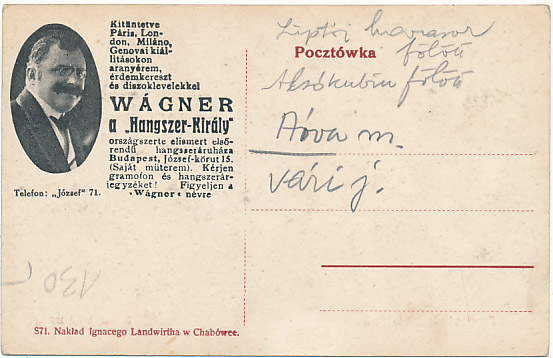 Kitüntetve
Páris, Lon-
don, Miláno,
Genovai kiál-
litásokon
aranyérem,
érdemkereszt
és diszoklevelekkel
WÁGNER
a „Hangszer-Király"
országszerte elismert első-
rendű hangszeráruháza
Budapest, József-körut 15.
(Saját műterem). Kérjen
gramofon és hangszerár-
jegyzéket! Figyeljen a
»Wágner« névre
Telefon: „József" 71.
Liptói havasok
Pocztówka
fölött
Alsókubin fölött
Árva m.
vári j.
130
S71. Nakład Ignacego Landwirtha w Chabówce.